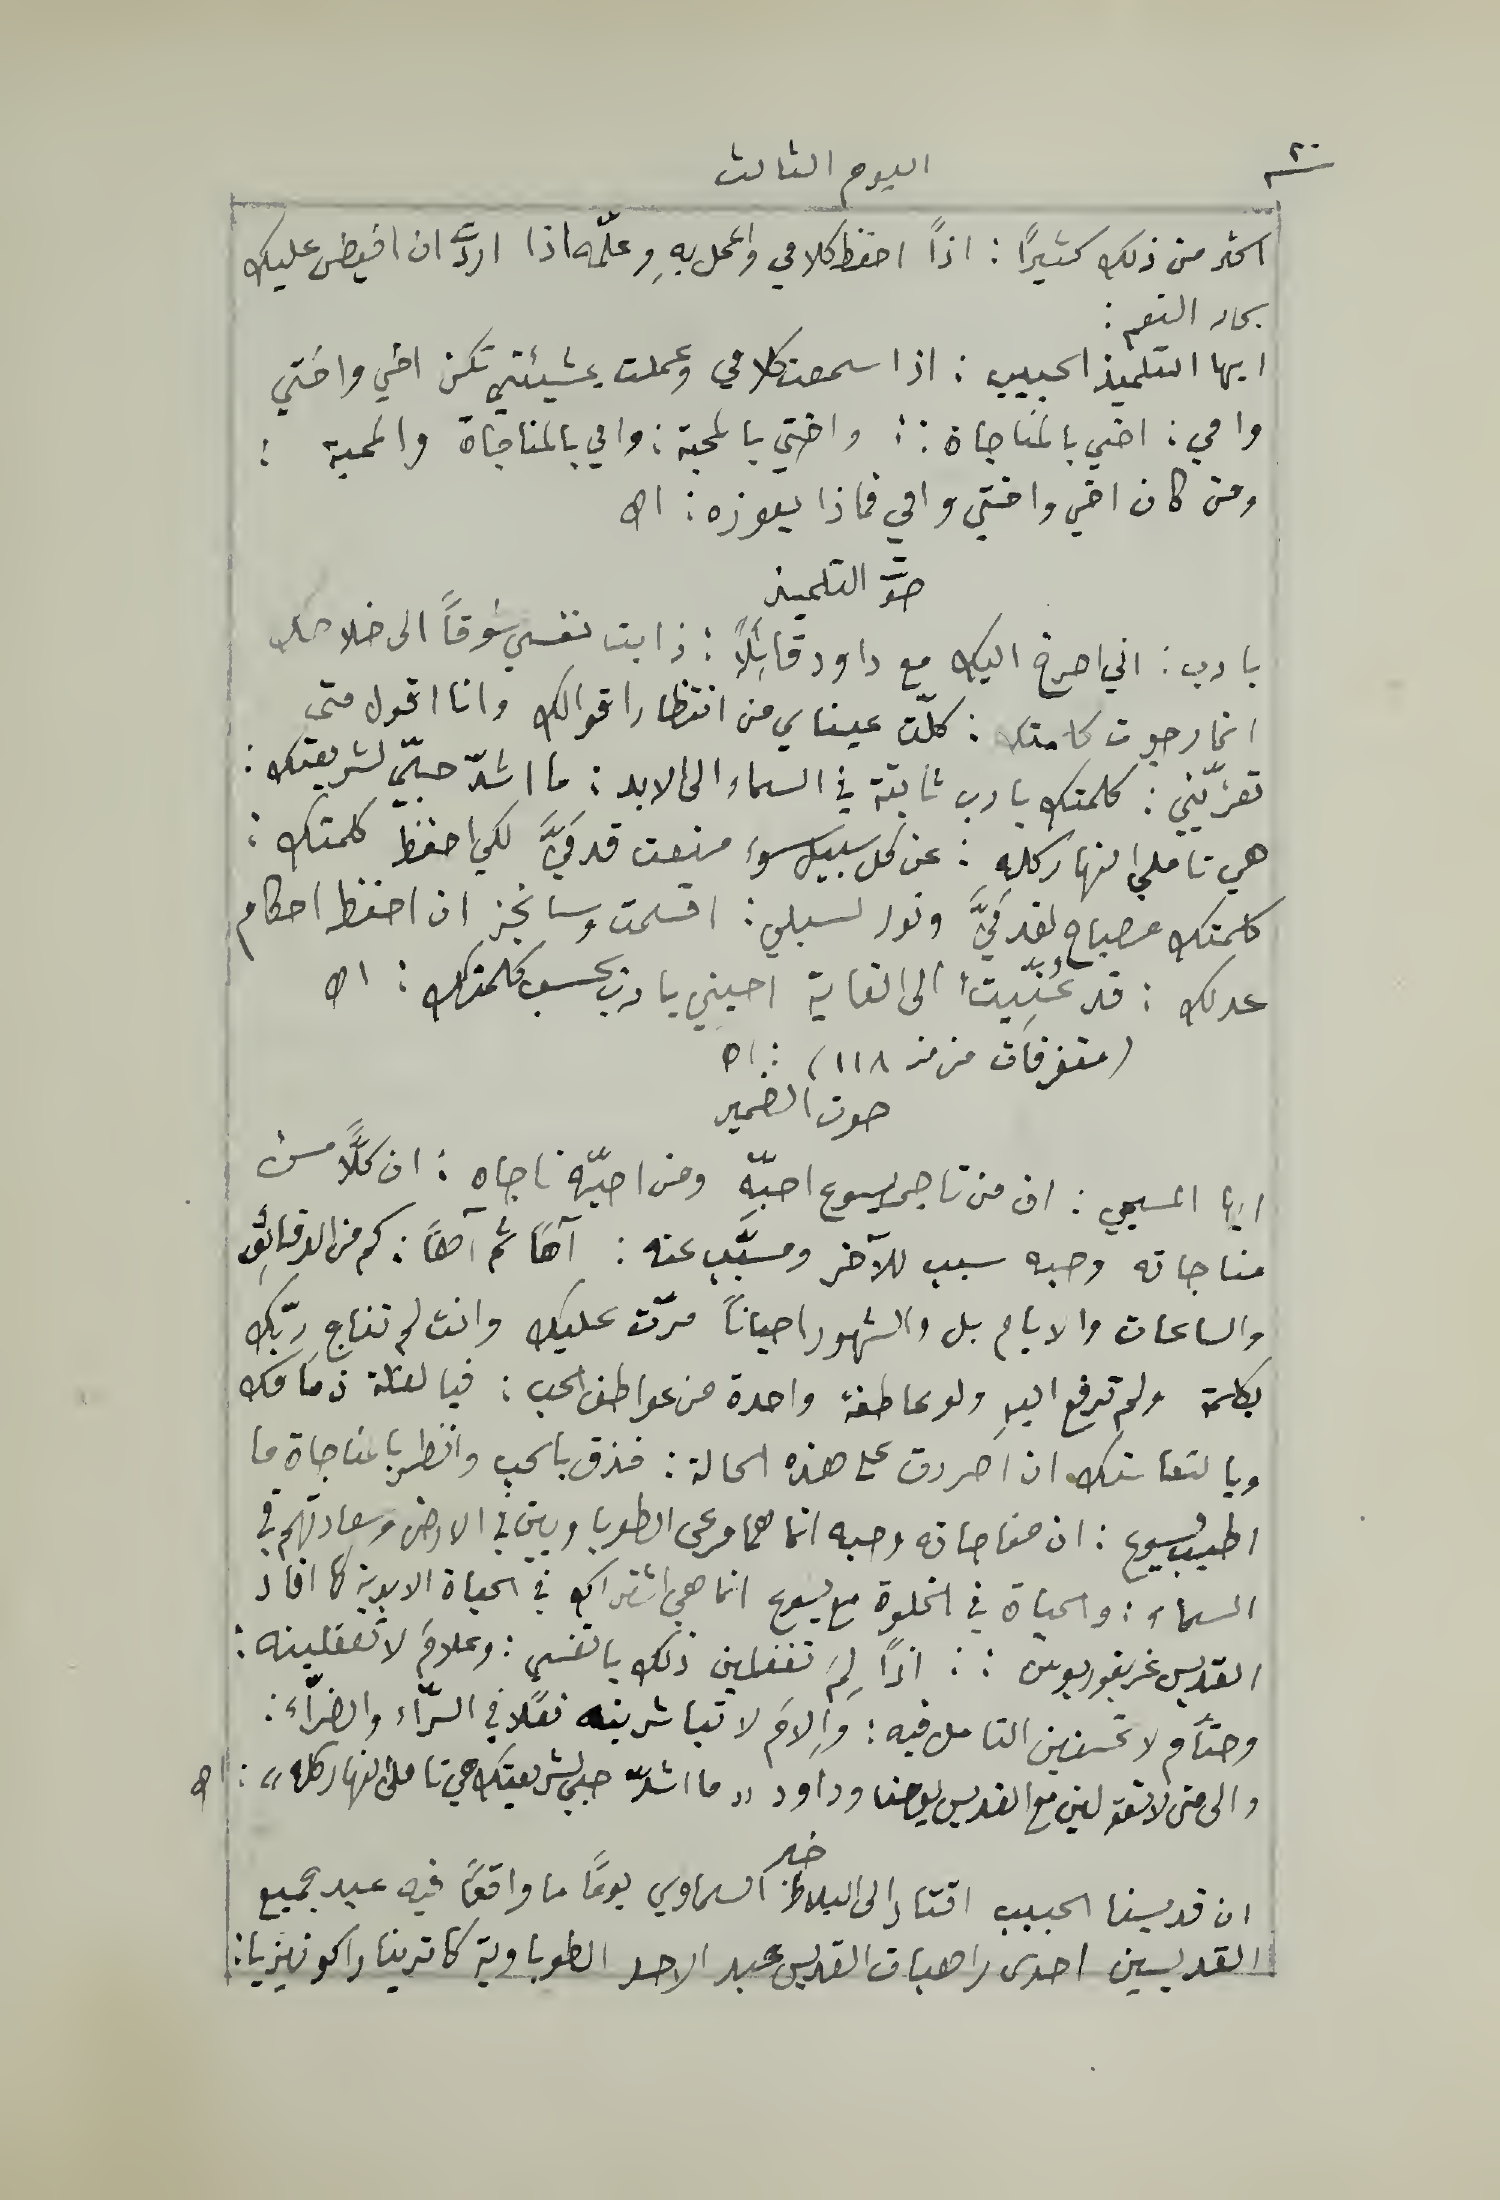 ٢٠
اليوم الثالث
اكثر من ذلك كثيرًا : اذاً احفظ كلامي واعمل بهِ وعلّمه اذا اردتَّ ان افيض عليك
بحار النعم :
ايها التلميذ الحبيب : اذا سمعت كلامي وعملت بمشيئتي تكن اخي واختي
وامي : اخي بالمناجاة : : واختي بالمحبة : وامي بالمناجاة والمحبة :
ومن كان اخي واختي وامي فماذا يعوزه : اﻫ
صوت التلميذ
يا رب : اني اصرخ اليك مع داود قائِلاً : ذابت نفسي شوقاً الى خلاصك
انما رجوت كلمتك : كلّت عيناي من انتظار اقوالك وانا اقول متى
تعزّيني : كلمتك يا رب ثابتة في السماء الى الابد : ما اشدّ حبّي لشريعتك :
هي تاملي النهار كلهِ : عن كل سبيل سوء منعت قدميَّ لكي احفظ كلمتك :
كلمتك مصباح لقدميَّ ونور لسبلي : اقسمت وسانجز ان احفظ احكام
عدلك : قد عُنّيت الى الغاية احيني يا رب بحسب كلمتك : اﻫ
(متفرقات من مز ١١٨) : اﻫ
صوت الضمير
ايها المسيحي : ان من ناجى يسوع احبّهِ ومن احبّه ناجاه : ان كلًّا من
مناجاته وحبه سبب للآخر ومسبَّب عنه : آهًا ثم آهًا : كم من الدقائِق
والساعات والايام بل والشهور احياناً مرّت عليك وانت لم تناجِ ربّك
بكلمة ولم ترفع اليهِ ولو عاطفة واحدة من عواطف الحب : فيا لغفلة زمانك
ويا لتعاستك ان اصررت على هذه الحالة : فذق بالحب وانظر بالمناجاة ما
اطيب يسوع : ان مناجاته وحبه انما هما مرعى الطوباويين في الارض وسعادتهم في
السماء : والحياة في الخلوة مع يسوع انما هي اشتراك في الحياة الابدية كما افاد
القديس غريغوريوس : : اذًا لِمَ تغفلين ذلك يا نفسي : وعلامَ لا تعقلينه :
وحتاَم لا تحسنين التامل فيه : وإِلامَ لا تباشرينه فعلًا في السرّاء والضرّاء :
والى متى لا تقولين مع القديس يوحنا وداود « ما اشدّ حبي لشريعتك هي تاملي النهار كله » : اﻫ
خبر
ان قديسنا الحبيب اقتاد الى البلاط السماوي يومًا ما واقعًا فيه عيد جميع
القديسين احدى راهبات القديس عبد الاحد الطوباوية كاترينا راكونيزيا :